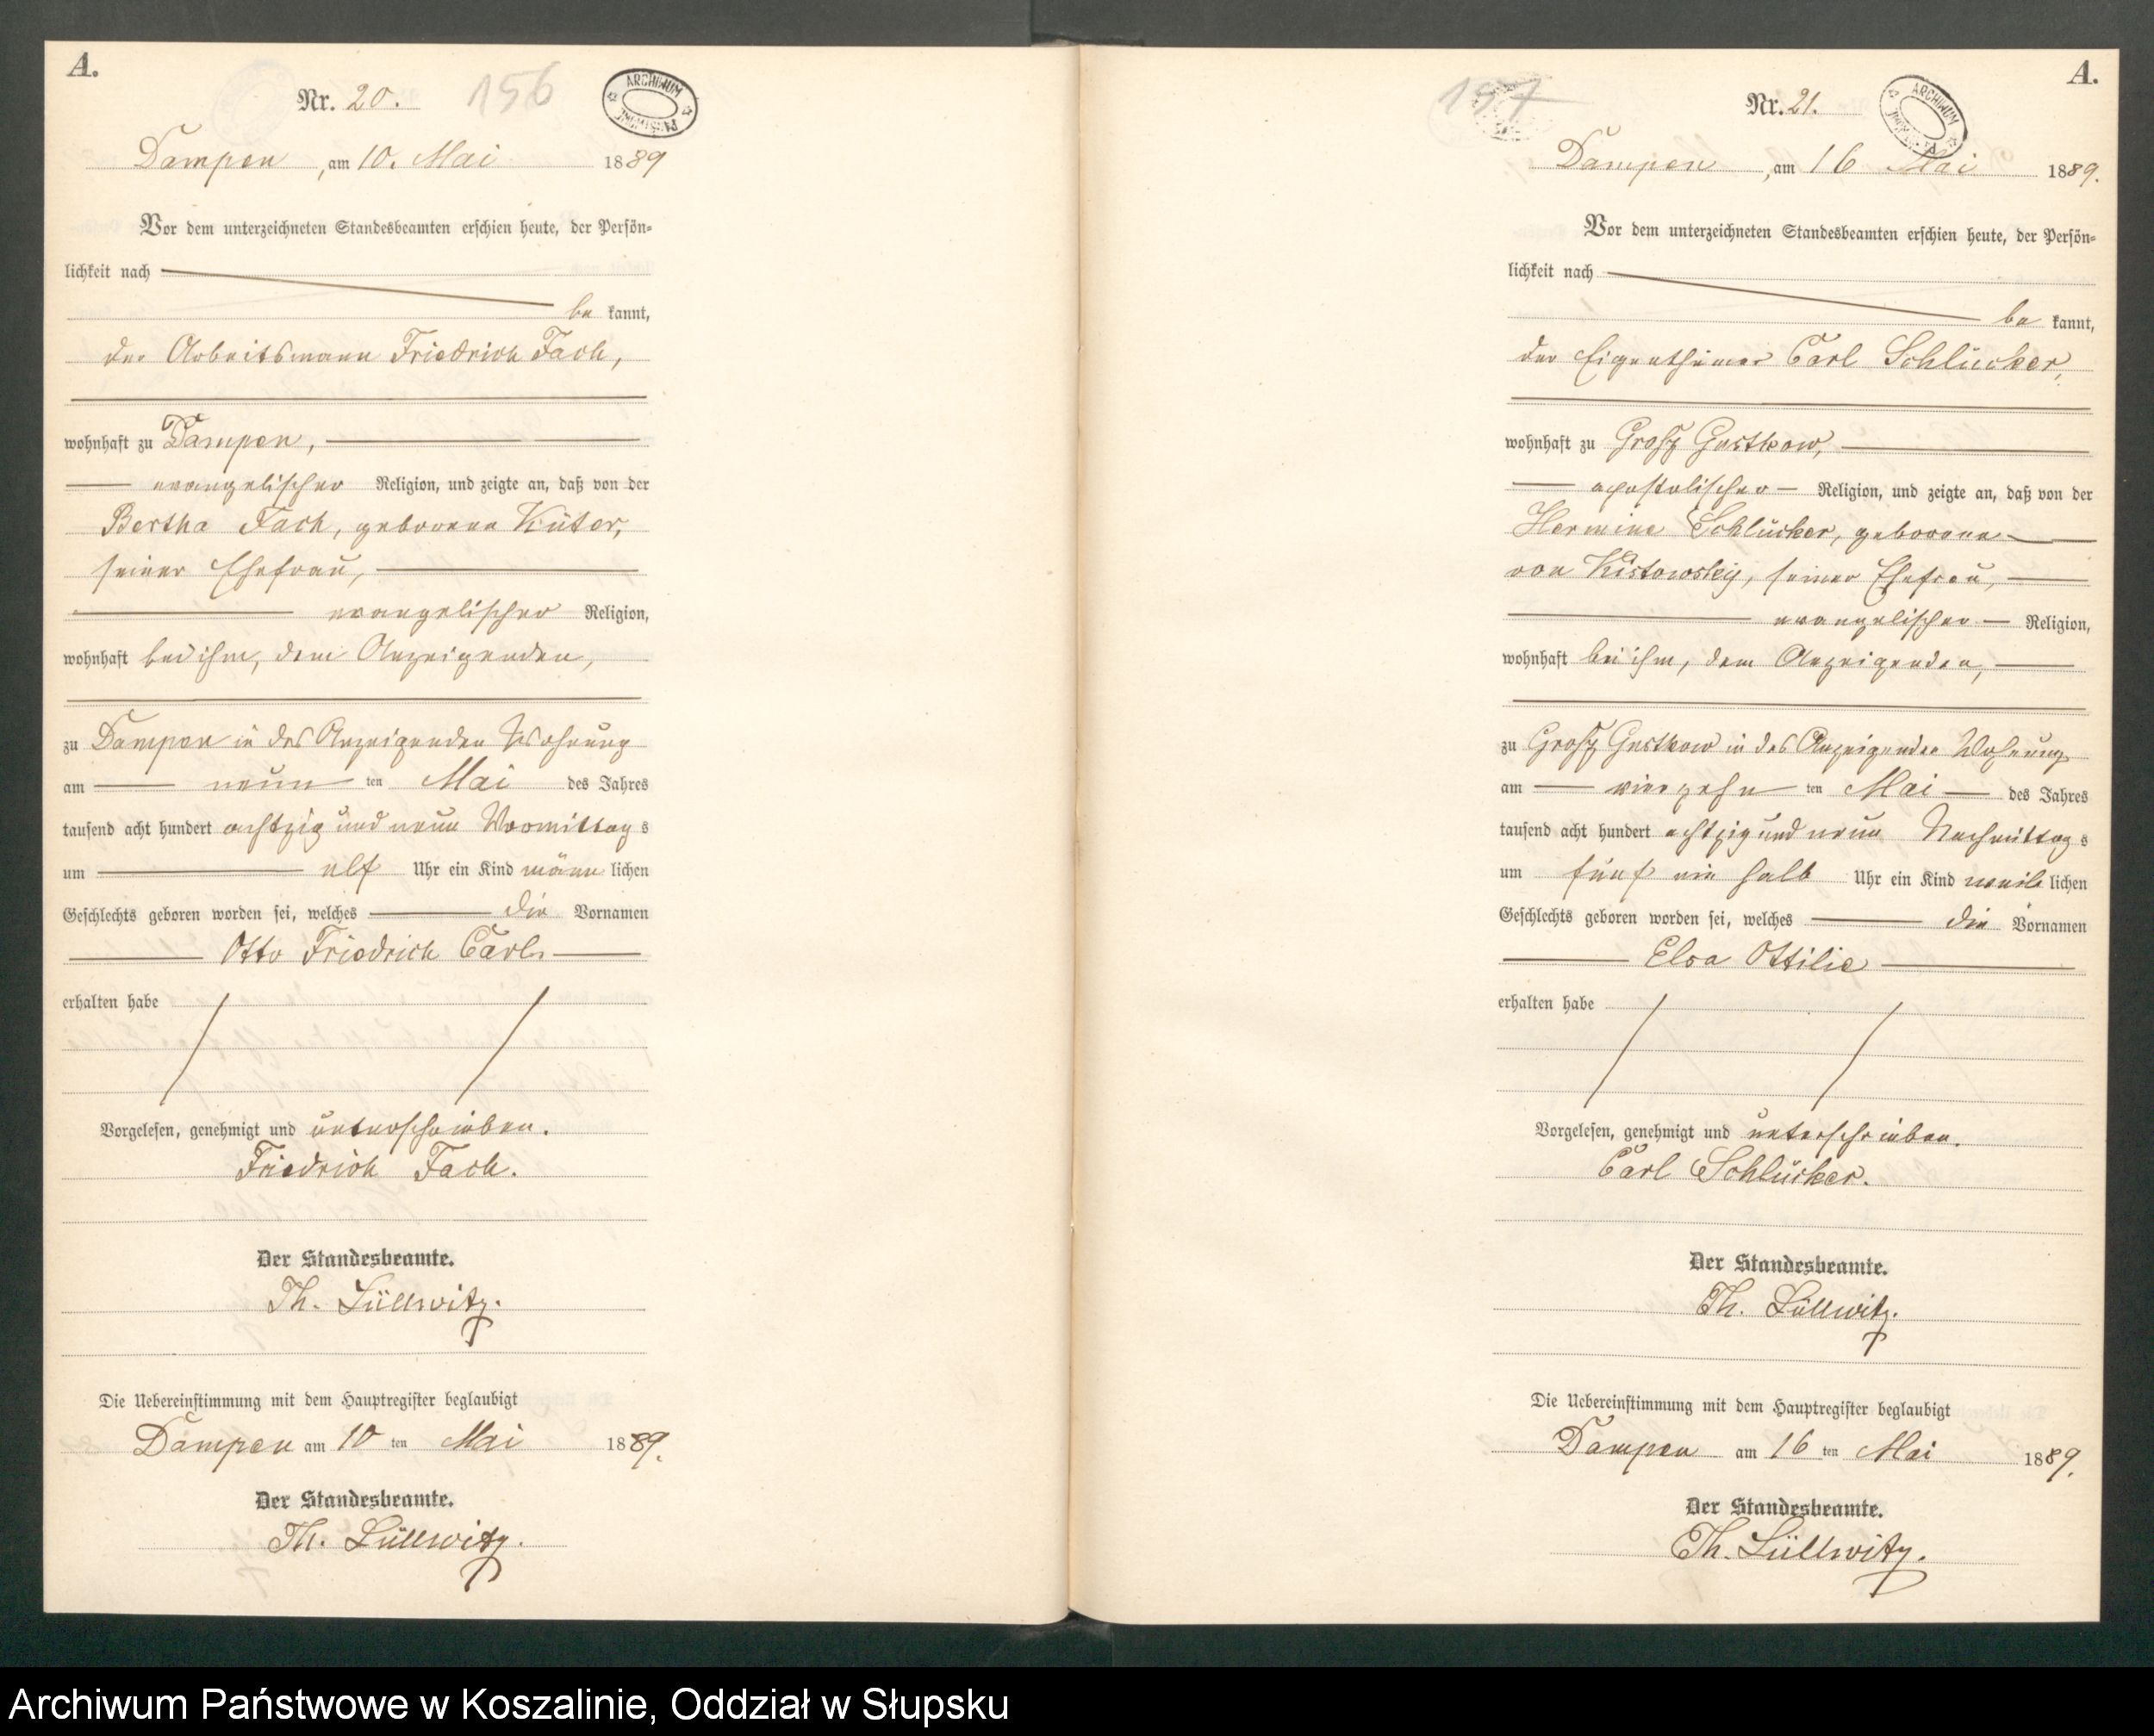 A.
Nr. 20.
156
ARCHIWUM
Dampen, am 10. Mai 1889
Vor dem unterzeichneten Standesbeamten erschien heute, der Persön-
lichkeit nach
be kannt,
der Arbeitsmann Friedrich Fach,
wohnhaft zu Dampen,
evangelischer Religion, und zeigte an, daß von der
Bertha Fach, geborene Küter,
seiner Ehefrau,
evangelischer Religion,
wohnhaft bei ihm, dem Anzeigenden,
zu Dampen in des Anzeigenden Wohnung
am neun ten Mai des Jahres
tausend acht hundert achtzig und neun Vormittag s
um elf Uhr ein Kind männ lichen
Geschlechts geboren worden sei, welches die Vornamen
Otto Friedrich Carl
erhalten habe
Vorgelesen, genehmigt und unterschrieben.
Friedrich Fach.
Der Standesbeamte.
Th. Lüllwitz.
Die Uebereinstimmung mit dem Hauptregister beglaubigt
Dampen am 10 ten Mai 1889.
Der Standesbeamte.
Th. Lüllwitz.
A.
157
Nr. 21.
ARCHIWUM
Dampen, am 16 Mai 1889.
Vor dem unterzeichneten Standesbeamten erschien heute, der Persön-
lichkeit nach
be kannt,
der Eigenthümer Carl Schlücker,
wohnhaft zu Groß Gustkow,
apostolischer Religion, und zeigte an, daß von der
Hermine Schlücker, geborene
von Kistowsky, seiner Ehefrau,
evangelischer Religion,
wohnhaft bei ihm, dem Anzeigenden,
zu Groß Gustkow in des Anzeigenden Wohnung
am vierzehn ten Mai des Jahres
tausend acht hundert achtzig und neun Nachmittag s
um fünf ein halb Uhr ein Kind weib lichen
Geschlechts geboren worden sei, welches die Vornamen
Elsa Ottilie
erhalten habe
Vorgelesen, genehmigt und unterschrieben.
Carl Schlücker.
Der Standesbeamte.
Th. Lüllwitz.
Die Uebereinstimmung mit dem Hauptregister beglaubigt
Dampen am 16 ten Mai 1889.
Der Standesbeamte.
Th. Lüllwitz.
Archiwum Państwowe w Koszalinie, Oddział w Słupsku